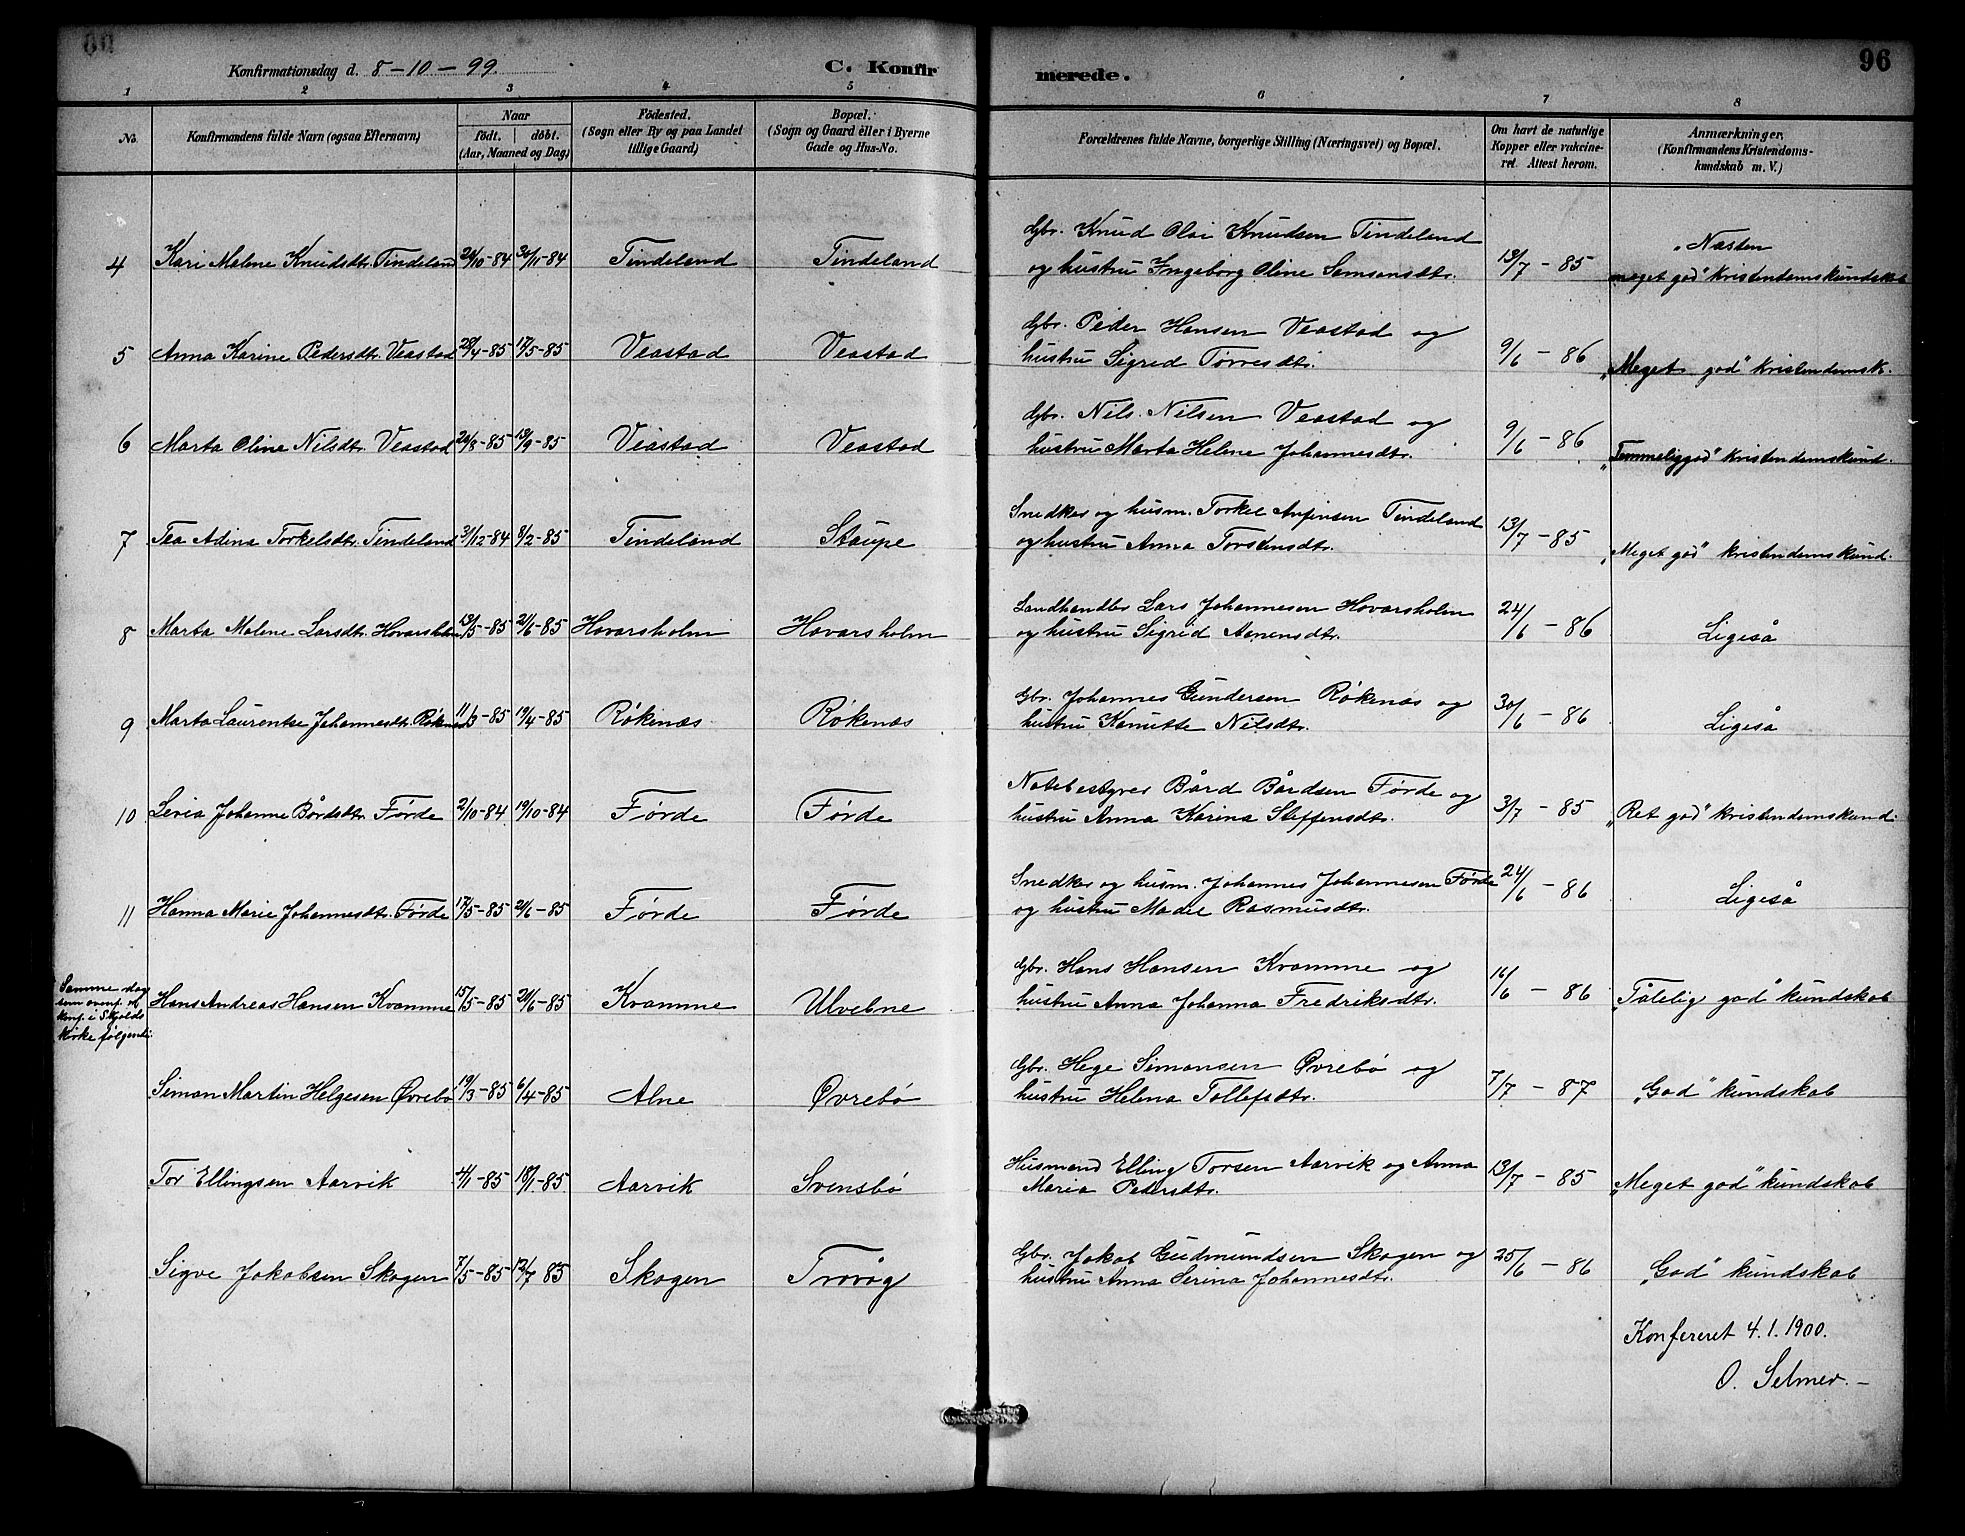 Konfirmationsdag d. 8-10-99. C. Konfirmerede. 96
1 2 3 4 5 6 7 8
No. Konfirmandens fulde Navn (ogsaa Efternavn)
Naar
födt. döbt.
(Aar, Maaned og Dag)
Födested.
(Sogn eller By og paa Landet
tillige Gaard)
Bopæl.
(Sogn og Gaard eller i Byerne
Gade og Hus-No.
Forældrenes fulde Navne, borgerlige Stilling (Næringsvei) og Bopæl.
Om havt de naturlige
Kopper eller vakcine-
ret. Attest herom.
Anmærkninger,
(Konfirmandens Kristendoms-
kundskab m. V.)
4 Kari Malene Knudsdtr. Tindeland /10-84 30/11-84 Tindeland Tindeland
Gbr. Knud Olai Knudsen Tindeland
og hustru Ingeborg Oline Samsonsdtr. 13/7 - 85
„Næsten
meget god" kristendomskundskab
5 Anna Karine Pedersdtr. Veastad 28/4-85 17/5-85 Veastad Veastad
Gbr. Peder Hansen Veastad og
hustru Sigrid Tørresdtr. 9/6 - 86 „Meget god" kristendomsk.
6 Marta Oline Nilsdtr. Veastad /8-85 13/9-85 Veastad Veastad
Gbr. Nils Nilsen Veastad og
hustru Marta Helene Johannesdtr. 9/6 - 86 „Temmelig god" kristendomskund.
7 Tea Adina Torkelsdtr. Tindeland 31/12-84 8/2-85 Tindeland Staupe
Snedker og husm. Torkel Anfinsen Tindeland
og hustru Anna Torstensdtr. 13/7 - 85 „Meget god" kristendomskund.
8 Marta Malene Larsdtr. Hovarsholm 13/5-85 21/6-85 Hovarsholm Hovarsholm
Landhandler Lars Johannesen Hovarsholm
og hustru Sigrid 24/6 - 86 Ligeså
9 Marta Laurentse Johannesdtr. Røkenæs 11/3-85 19/4-85 Røkenæs Røkenæs
Gbr. Johannes Gundersen Røkenæs og
hustru Kanutte Nilsdtr. 30/6 - 86 Ligeså
10 Johanne Bårdsdtr. Førde 2/10-84 19/10-84 Førde Førde
Notebestyrer Bård Bårdsen Førde og
hustru Anna Karina Steffensdtr. 3/7 - 85 „Ret god" kristendomskund.
11 Hanna Marie Johannesdtr. Førde 17/5-85 21/6-85 Førde Førde
Snedker og husm. Johannes Johannesen Førde
og hustru Rasmusdtr. 24/6 - 86 Ligeså
Samme dag
som ovenf. er
konf. i Skjolds
kirke følgende:
Hans Andreas Hansen Kvamme 15/5-85 /6-85 Kvamme Ulveline
Gbr. Hans Hansen Kvamme og
hustru Anna Johanna Fredriksdtr. 16/6 - 86 „Tålelig god" kundskab
Simon Martin Helgesen Øvrebø 19/3-85 6/4-85 Alne Øvrebø
Gbr. Hege Simonsen Øvrebø og
hustru Helena Tollefsdtr. 7/7 - 87 „God" kundskab
Tor Ellingsen Aarvik 4/1-85 18/1-85 Aarvik Svensbø
Husmand Elling Torsen Aarvik og Anna
Maria Pedersdtr. 13/7 - 85 „Meget god" kundskab
Sigve Jakobsen Skogen 7/5-85 12/7 85 Skogen Trovåg
Gbr. Jakob Gudmundsen Skogen og
hustru Anna Serina Johannesdtr. 25/6 - 86 „God" kundskab
Konfereret 4.1.1900.
O. Selmer.-